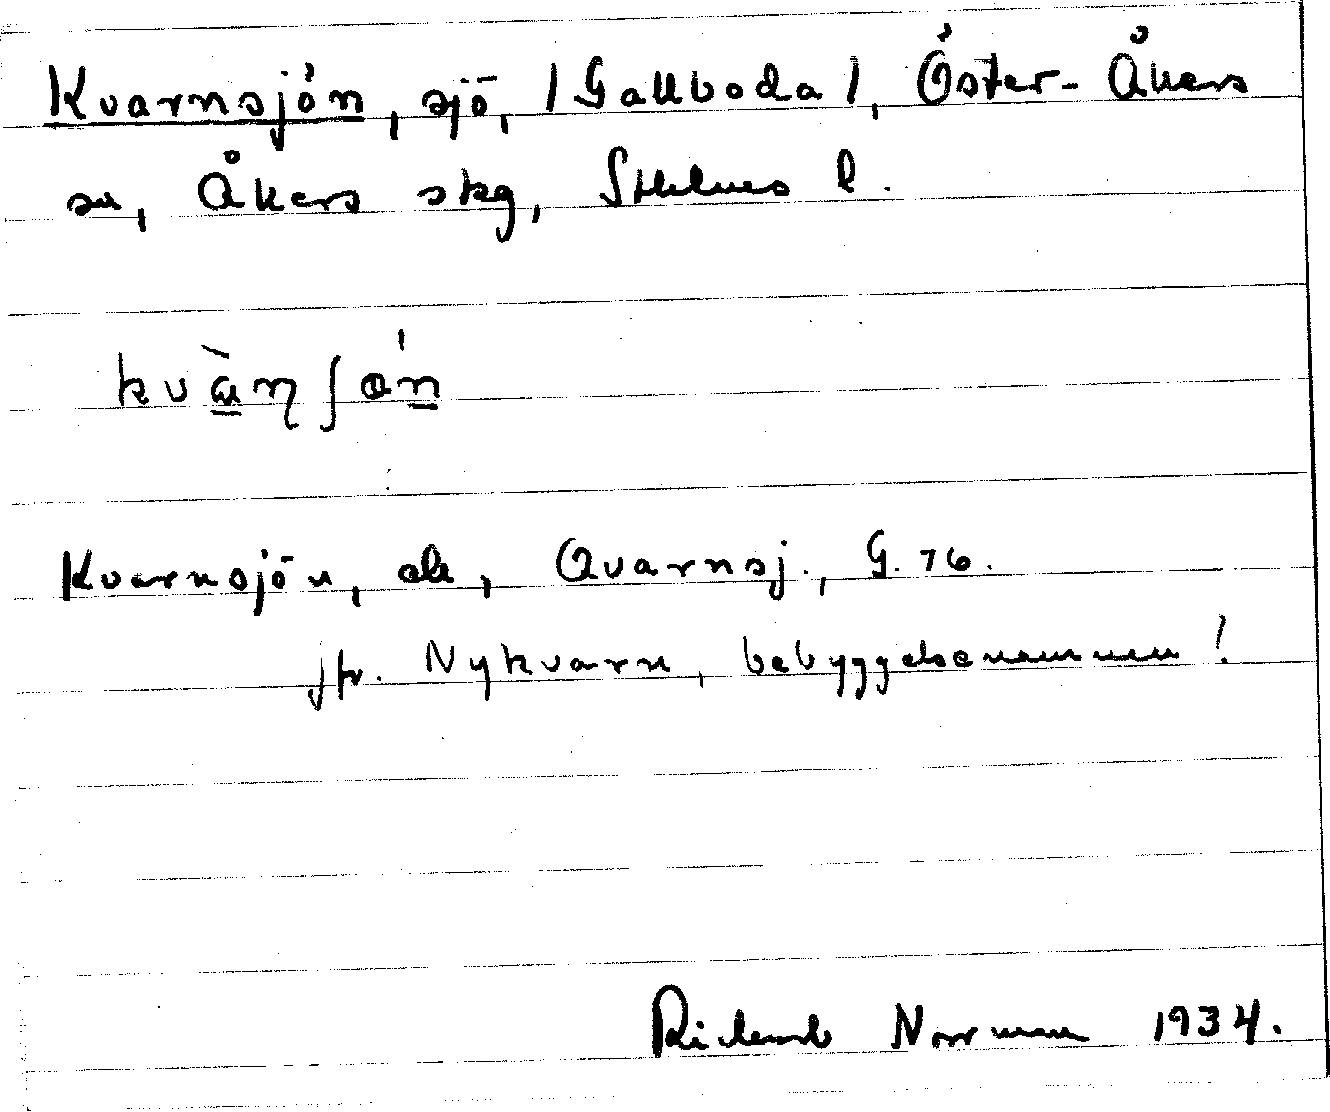 Kvarnsjön, sjö, /Gallboda/, Öster-Åkers
sn, Åkers skg, Sthlms l.
kvὰɳʃөn
Kvarnsjön, ek, Qvarnsj., G. 76.
jfr. Nykvarn, bebyggelsenamnen!
Rickard Norrman 1934.